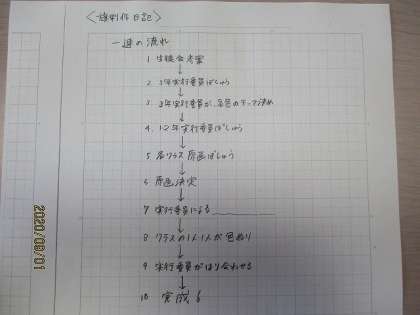 〈旗制作日記〉
一連の流れ
1 生徒会考案
↓
2. 3年実行委員ぼしゅう
↓
3 3年実行委員が、各色のテーマ決め
↓
4. 1.2年実行委員ぼしゅう
↓
5 各クラス原画ぼしゅう
↓
6 原画決定
↓
7 実行委員による
↓
8 クラスの1人1人が色ぬり
↓
9 実行委員がはり合わせる
↓
10 完成!
2020/09/01